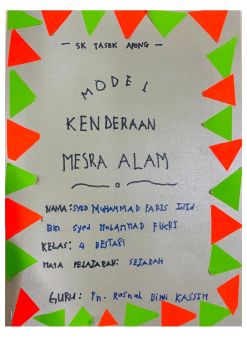 — SK TASEK APONG —
MODEL
KENDERAAN
MESRA ALAM
NAMA: SYED MUHAMMAD FARIS
BIN SYED MOHAMMAD FIKRI
KELAS: 4 BESTARI
MATA PELAJARAN: SEJARAH
GURU: Pn. Rosnah BINTI KASSIM